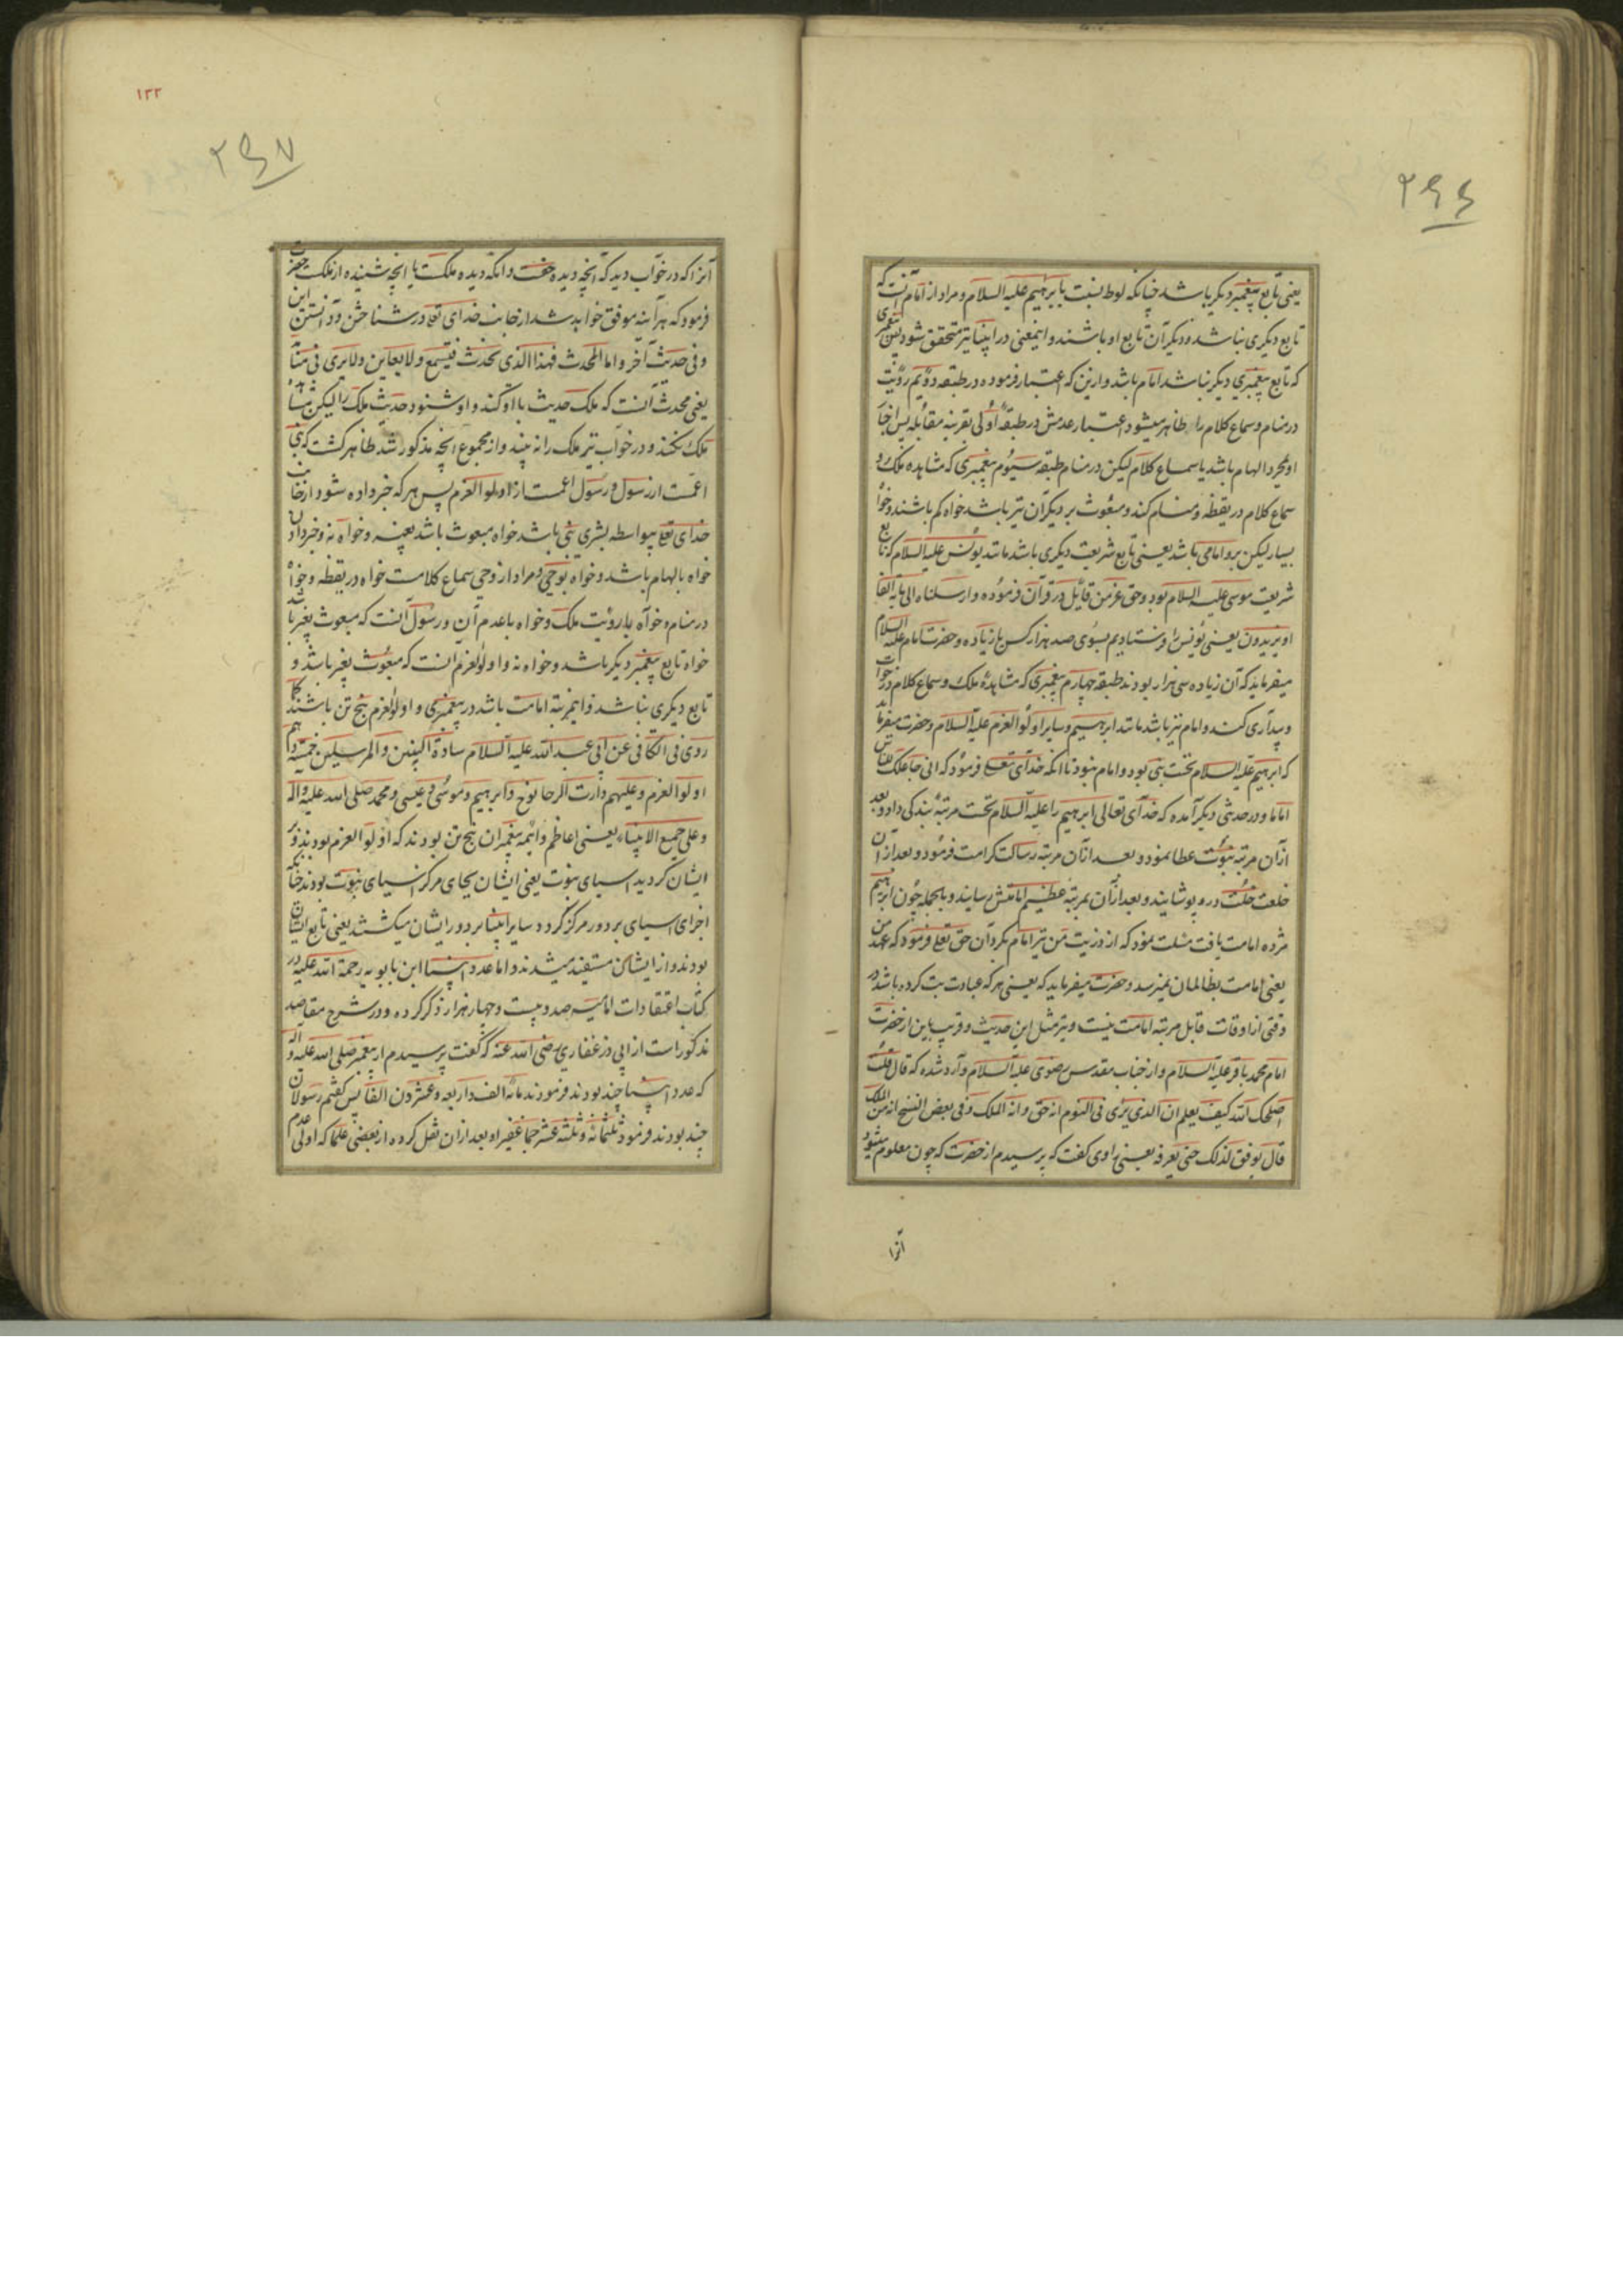 ۲۶۶
یعنی تابع پیغمبر دیگر باشد چنانکه لوط نسبت بابرهیم علیه السلام و مراد از امام آنست که
تابع دیگری نباشد و دیگران تابع او باشند و اینمعنی در انبیا نیز متحقق شود یعنی پیغمبری
که تابع پیغمبری دیگر نباشد امام باشد و ازین که اعتبار فرموده در طبقه دویم رؤیت
در منام و سماع کلام را ظاهر میشود اعتبار عدمش در طبقهٔ اولی بقرینه مقابله پس انجا
او بمجرد الهام باشد یا سماع کلام لیکن در منام طبقه سیوم پیغمبری که مشاهده ملک و
سماع کلام در یقظه و منام کند و مبعوث بر دیگران نیز باشد خواه کم باشند و خواه
بسیار لیکن برو امامی باشد یعنی تابع شریعت دیگری باشد مانند یونس علیه السلام که تابع
شریعت موسی علیه السلام بود و حق عز من قائل در قرآن فرموده و ارسلناه الی مایة الفا
او یزیدون یعنی یونس را فرستادیم بسوی صد هزار کس یا زیاده و حضرت امام علیه السلام
میفرماید که آن زیاده سی هزار بودند طبقه چهارم پیغمبری که مشاهدهٔ ملک و سماع کلام در خواب
و بیداری کند و امام نیز باشد مانند ابرهیم و سایر اولو العزم علیه السلام و حضرت میفرماید
که ابرهیم علیه السلام نخست نبی بود و امام نبود تا انکه خدای تعلی فرمود که انی جاعلک للناس
اماما و در حدیثی دیگر آمده که خدای تعالی ابرهیم را علیه السلام نخست مرتبهٔ بندگی داد و بعد
ازان مرتبه نبوت عطا نمود و بعد ازان مرتبه رسالت کرامت فرمود و بعد از ان
خلعت خلت درو پوشانید و بعد ازان بمرتبهٔ عظیم امامتش رسانید و بالجمله چون ابرهیم
مژده امامت یافت مسئلت نمود که از ذریت من نیز امام بگردان حق تعلی فرمود که عهد من
یعنی امامت بظالمان نمیرسد و حضرت میفرماید که یعنی هر که عبادت بت کرده باشد در
وقتی از اوقات قابل مرتبه امامت نیست و نیز مثل این حدیث و قریب باین از حضرت
امام محمد باقر علیه السلام و از جناب مقدس رضوی علیه السلام وارد شده که قال قلت
اصلحک الله کیف یعلم ان الذی یری فی النوم انه حق و انه الملک و فی بعض النسخ انه من الملک
قال یوفق لذلک حتی یعرفه یعنی راوی کفت که پرسیدم از حضرت که چون معلوم میشود
آنرا
۱۳۳
۲۶۷
آنرا که در خواب دید که آنچه دیده حقست و انکه دیده ملکست یا انچه شنیده از ملکست حضرت
فرمود که هراینه موفق خواهد شد از جانب خدای تعلی در شناختن و دانستن این
و فی حدیث آخر و اما المحدث فهذا الذی یحدث فیسمع و لا یعاین و لا یری فی منامه
یعنی محدث آنست که ملک حدیث با او کند و او شنود حدیث ملک را لیکن مشاهدهٔ
ملک نکند و در خواب نیز ملک را نه بیند و از مجموع انچه مذکور شد ظاهر کشت که نبی
اعمست از رسول و رسول اعمست از اولو العزم پس هر که خبر داده شود از جانب
خدای تعلی بیواسطه بشری نبی باشد خواه مبعوث باشد بغیر و خواه نه و خبر دادن
خواه بالهام باشد و خواه بوحی و مراد از وحی سماع کلامست خواه در یقظه و خواه
در منام و خواه با رؤیت ملک و خواه با عدم آن و رسول آنست که مبعوث بغیر باشد
خواه تابع پیغمبر دیگر باشد و خواه نه و اولو العزم آنست که مبعوث بغیر باشد و
تابع دیگری نباشد و اینمرتبه امامت باشد در پیغمبری و اولو العزم پنج تن باشند کما
روی فی الکافی عن ابی عبد الله علیه السلام سادة النبیین و المرسلین خمسة و هم
اولو العزم و علیهم دارت الرحا نوح و ابرهیم و موسی و عیسی و محمد صلی الله علیه و اله
و علی جمیع الانبیاء یعنی اعاظم و ائمه پیغمبران پنج تن بودند که اولو العزم بودند و بر
ایشان کردید اسیای نبوت یعنی ایشان بجای مرکز اسیای نبوت بودند چنانکه
اجزای اسیای بر دور مرکز گردد سایر انبیا بر دور ایشان میکشتند یعنی تابع ایشان
بودند و از ایشان مستفید میشدند و اما عدد انبیا ابن بابویه رحمة الله علیه در
کتاب اعتقادات امامیه صد و بیست و چهار هزار ذکر کرده و در شرح مقاصد
مذکور است از ابی ذر غفاری رضی الله عنه که گفت پرسیدم از پیغمبر صلی الله علیه و اله
که عدد انبیا چند بودند فرمودند مائة الف و اربعه و عشرون الفا پس گفتم رسولان
چند بودند فرمود ثلثمائه و ثلثه عشر جما غفیرا و بعد ازان نقل کرده از بعضی علما که اولی عدم